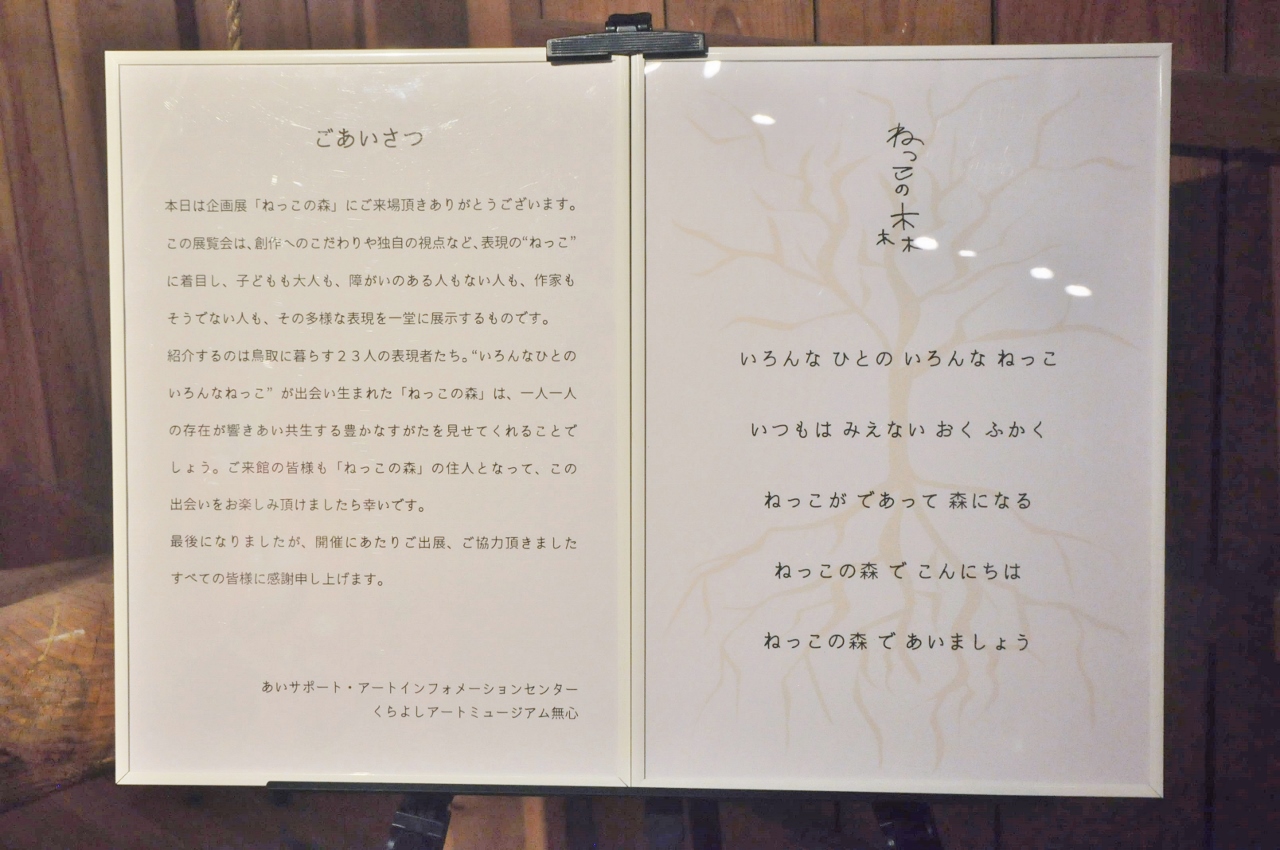 ごあいさつ
本日は企画展「ねっこの森」にご来場頂きありがとうございます。
この展覧会は、創作へのこだわりや独自の視点など、表現の“ねっこ”
に着目し、子どもも大人も、障がいのある人もない人も、作家も
そうでない人も、その多様な表現を一堂に展示するものです。
紹介するのは鳥取に暮らす２３人の表現者たち。“いろんなひとの
いろんなねっこ” が出会い生まれた「ねっこの森」は、一人一人
の存在が響きあい共生する豊かなすがたを見せてくれることで
しょう。ご来館の皆様も「ねっこの森」の住人となって、この
出会いをお楽しみ頂けましたら幸いです。
最後になりましたが、開催にあたりご出展、ご協力頂きました
すべての皆様に感謝申し上げます。
あいサポート・アートインフォメーションセンター
くらよしアートミュージアム無心
ねっこの森
いろんな ひとの いろんな ねっこ
いつもは みえない おく ふかく
ねっこが であって 森になる
ねっこの森 で こんにちは
ねっこの森 で あいましょう